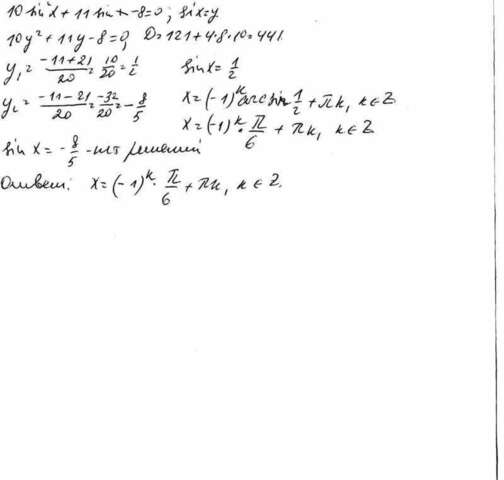 10 sin²x + 11 sin x - 8 = 0; sin x = y
10y² + 11y - 8 = 0, D = 121 + 4·8·10 = 441.
y₁ = (-11+21)/20 = 10/20 = 1/2
sin x = 1/2
y₂ = (-11-21)/20 = -32/20 = -8/5
x = (-1)ᵏ arcsin 1/2 + πk, k ∈ Z
x = (-1)ᵏ · π/6 + πk, k ∈ Z
sin x = -8/5 - нет решений
Ответ: x = (-1)ᵏ · π/6 + πk, k ∈ Z.